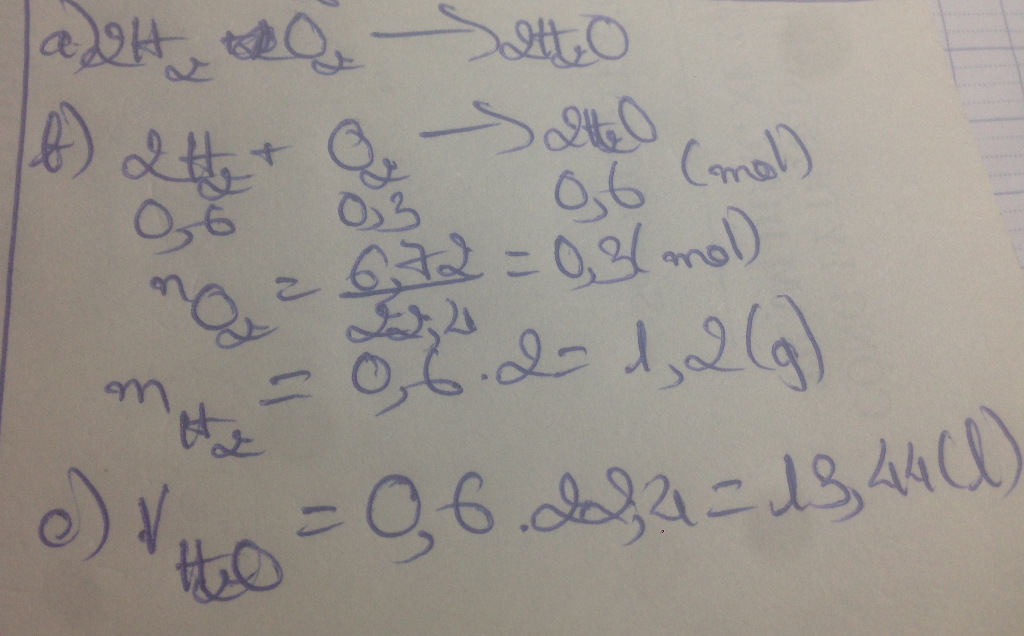 a) 2H₂ + O₂ → 2H₂O
b) 2H₂ + O₂ → 2H₂O
0,6 0,3 0,6 (mol)
nO₂ = 6,72 / 22,4 = 0,3 (mol)
mH₂ = 0,6 . 2 = 1,2 (g)
c) VH₂O = 0,6 . 22,4 = 13,44 (l)